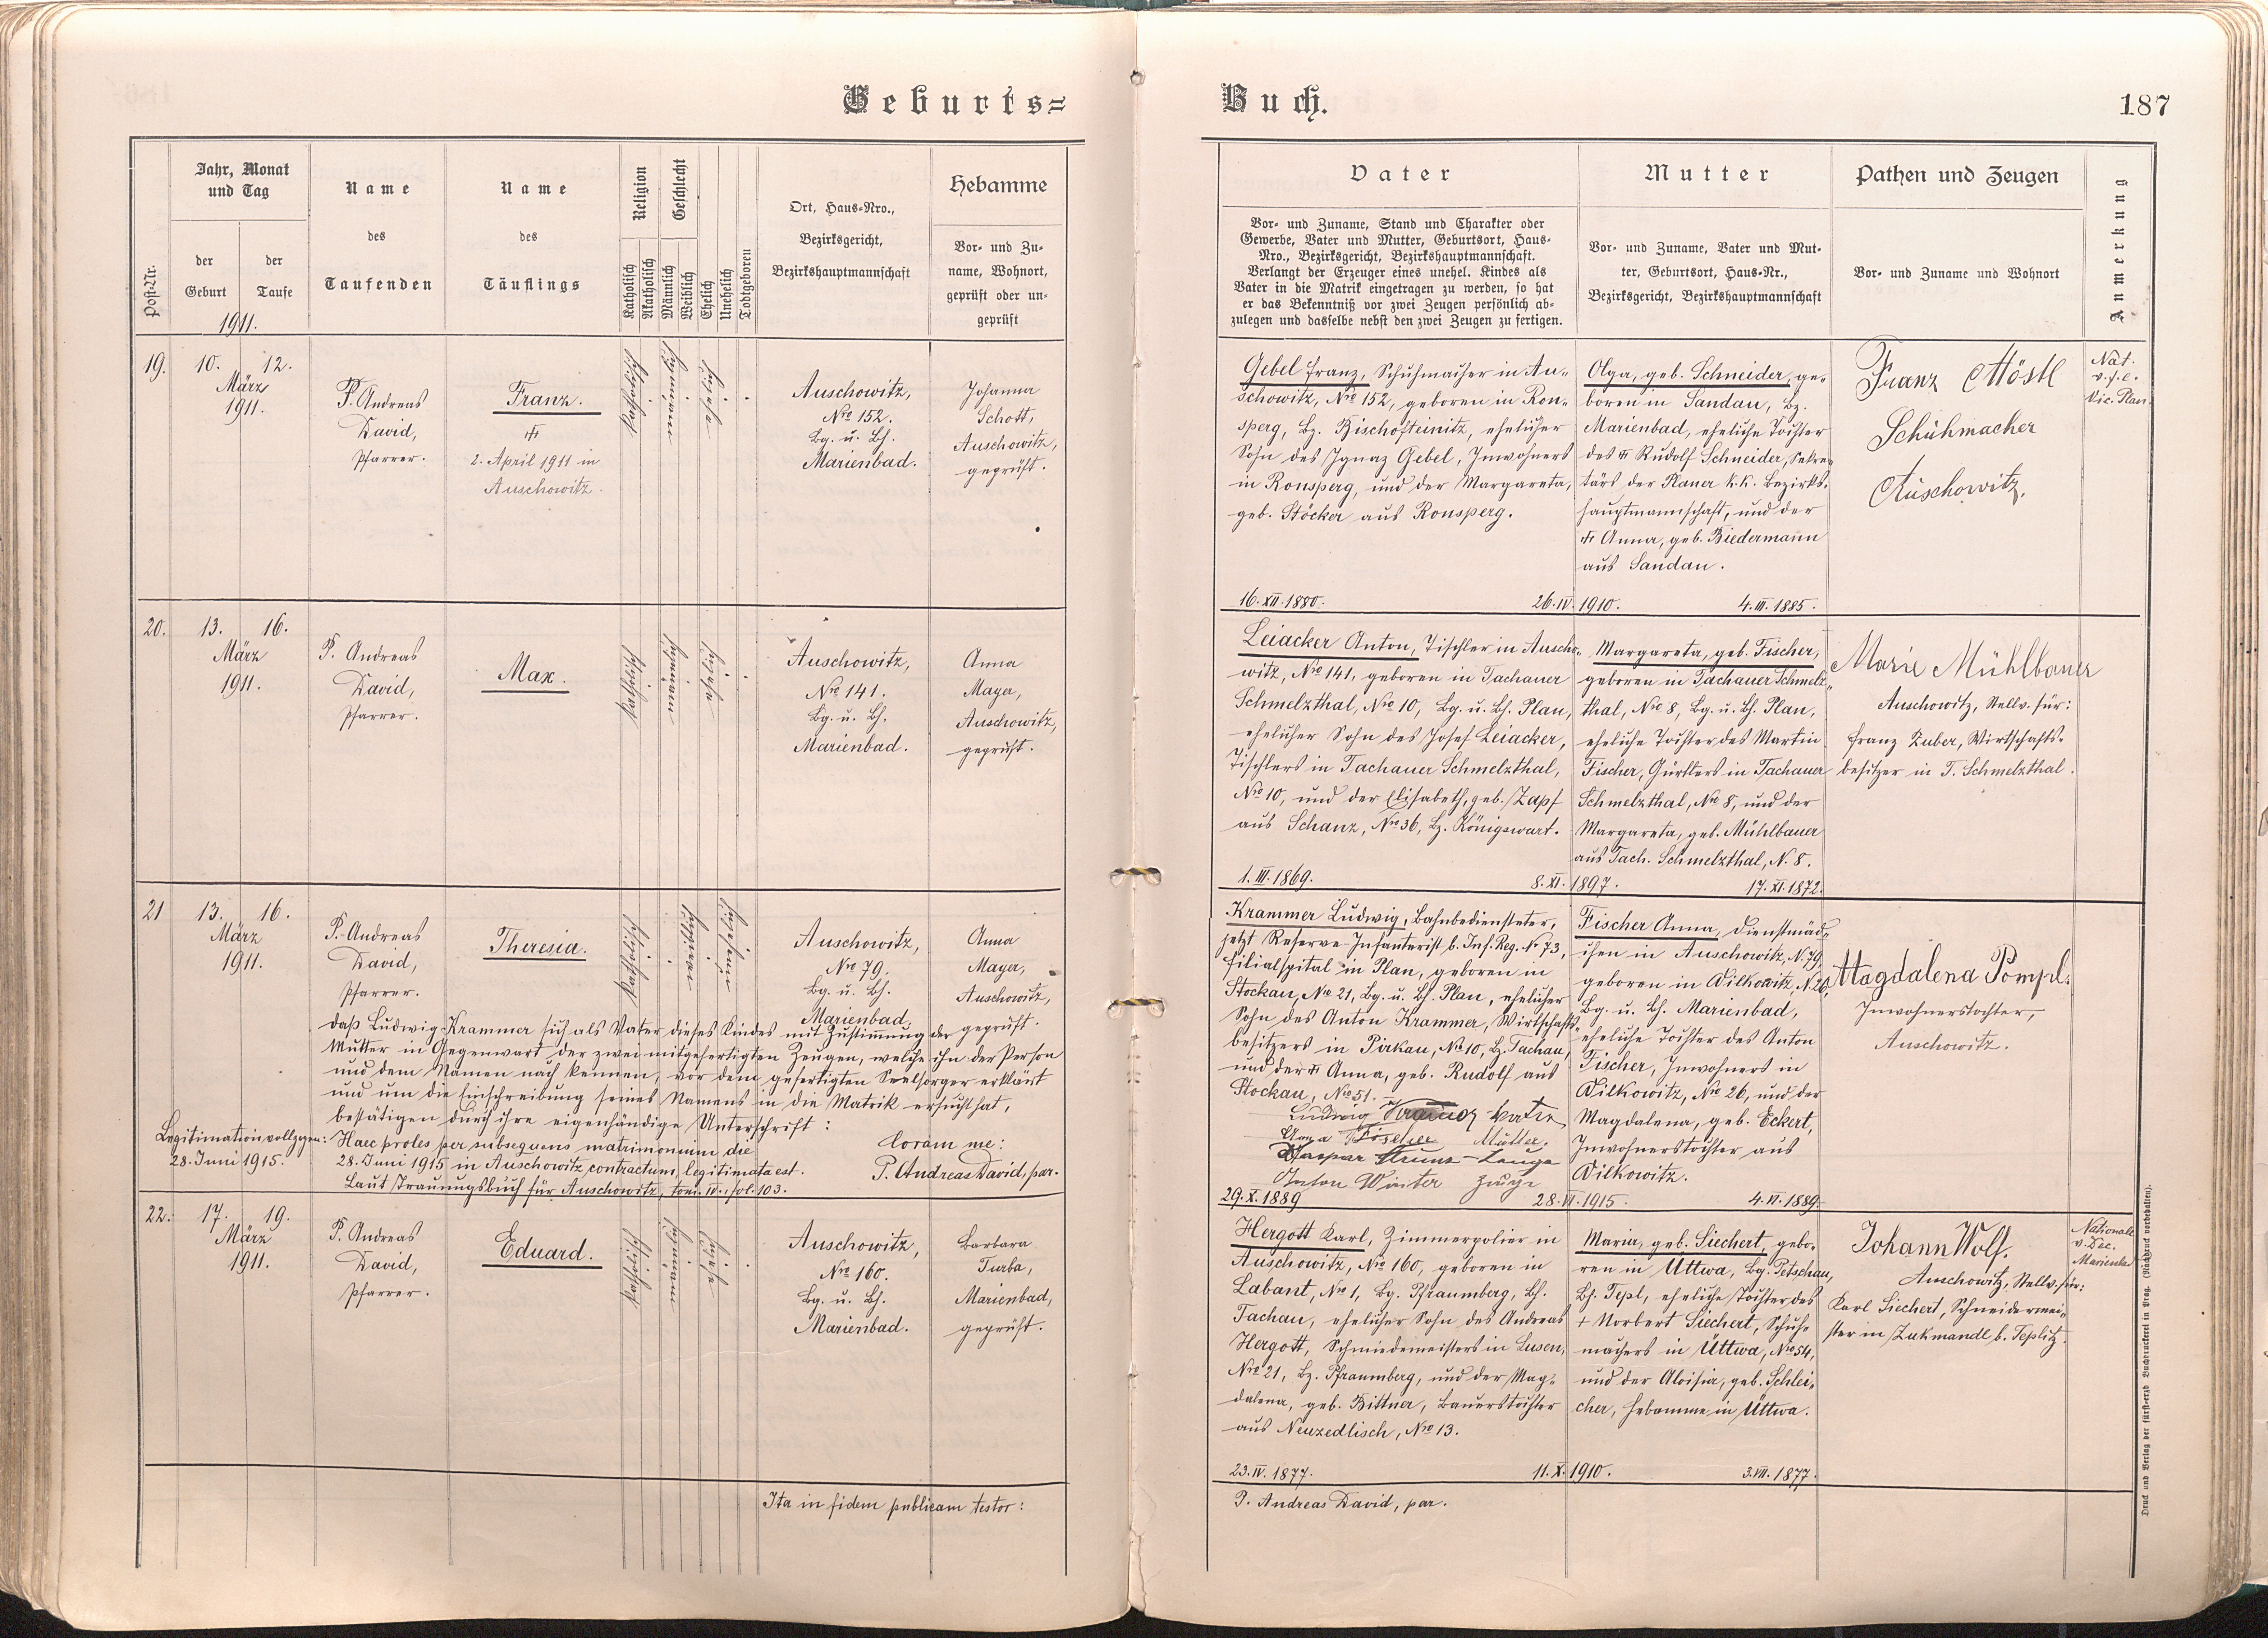 Geburts=
Buch.
187
Post-Nr.
Jahr, Monat
und Tag
der
Geburt
der
Taufe
1911.
Name
des
Taufenden
Name
des
Täuflings
Religion
Katholisch
Akatholisch
Geschlecht
Männlich
Weiblich
Ehelich
Unehelich
Todtgeboren
Ort, Haus=Nro.,
Bezirksgericht,
Bezirkshauptmannschaft
Hebamme
Vor= und Zu=
name, Wohnort,
geprüft oder un=
geprüft
Vater
Vor= und Zuname, Stand und Charakter oder
Gewerbe, Vater und Mutter, Geburtsort, Haus=
Nro., Bezirksgericht, Bezirkshauptmannschaft.
Verlangt der Erzeuger eines unehel. Kindes als
Vater in die Matrik eingetragen zu werden, so hat
er das Bekenntniß vor zwei Zeugen persönlich ab=
zulegen und dasselbe nebst den zwei Zeugen zu fertigen.
Mutter
Vor= und Zuname, Vater und Mut=
ter, Geburtsort, Haus=Nr.,
Bezirksgericht, Bezirkshauptmannschaft
Pathen und Zeugen
Vor= und Zuname und Wohnort
Anmerkung
19.
10. 12.
März
1911.
P. Andreas
David,
Pfarrer.
Franz.
2. April 1911 in
Auschowitz.
katholisch
ehelich
Auschowitz,
Nro 152.
Bg. u. Bh.
Marienbad.
Johanna
Schott,
Auschowitz,
geprüft.
Gebel Franz, Schuhmacher in Au=
schowitz, Nro 152, geboren in Ron=
sperg, Bz. Bischofteinitz, ehelicher
Sohn des Ignaz Gebel, Inwohners
in Ronsperg, und der Margareta,
geb. Stöcker aus Ronsperg.
16.XII.1880.
26.IV.1910.
Olga, geb. Schneider, ge=
boren in Sandau, Bz.
Marienbad, eheliche Tochter
des Rudolf Schneider, Sekre=
tärs der Planer k.k. Bezirks=
hauptmannschaft, und der
Anna, geb. Biedermann
aus Sandau.
4.III.1885.
Franz Möstl
Schuhmacher
Auschowitz.
Nat.
Vic. Plan.
20.
13. 16.
März
1911.
P. Andreas
David,
Pfarrer.
Max.
katholisch
ehelich
Auschowitz,
Nro 141.
Bg. u. Bh.
Marienbad.
Anna
Mayer,
Auschowitz,
geprüft.
Leiacker Anton, Tischler in Auscho=
witz, Nro 141, geboren in Tachauer
Schmelzthal, Nro 10, Bg. u. Bh. Plan,
ehelicher Sohn des Josef Leiacker,
Tischlers in Tachauer Schmelzthal,
Nro 10, und der Elisabeth, geb. Zapf
aus Schanz, Nro 36, Bz. Königswart.
1.III.1869.
8.XI.1897.
Margareta, geb. Fischer,
geboren in Tachauer Schmelz=
thal, Nro 8, Bg. u. Bh. Plan,
eheliche Tochter des Martin
Fischer, Gürtlers in Tachauer
Schmelzthal, Nro 8, und der
Margareta, geb. Mühlbauer
aus Tach. Schmelzthal, N. 8.
17.XI.1872.
Marie Mühlbauer
Auschowitz, Stellv. für:
Franz Zuber, Wirtschafts=
besitzer in T. Schmelzthal.
21
13. 16.
März
1911.
P. Andreas
David,
Pfarrer.
Theresia.
katholisch
Auschowitz,
Nro 79.
Bg. u. Bh.
Marienbad.
Anna
Mayer,
Auschowitz,
geprüft.
daß Ludwig Krammer sich als Vater dieses Kindes mit Zustimmung der
Mutter in Gegenwart der zwei mitgefertigten Zeugen, welche ihn der Person
und dem Namen nach kennen, vor dem gefertigten Seelsorger erklärt
und um die Einschreibung seines Namens in die Matrik ersucht hat,
bestätigen durch ihre eigenhändige Unterschrift:
Legitimation vollzogen:
28. Juni 1915.
Haec proles per subsequens matrimonium die
28. Juni 1915 in Auschowitz contractum, legitimata est.
Laut Trauungsbuch für Auschowitz, tom. IV., fol. 103.
Coram me:
P. Andreas David, par.
Krammer Ludwig, Bahnbediensteter,
jetzt Reserve-Infanterist b. Inf. Reg. Nr 73,
Filialspital in Plan, geboren in
Stockau, Nro 21, Bg. u. Bh. Plan, ehelicher
Sohn des Anton Krammer, Wirtschafts=
besitzers in Pirkau, Nro 10, Bz. Tachau,
und der Anna, geb. Rudolf aus
Stockau, Nro 51.
Ludwig Vater
Anna Fischer Mutter.
Zeuge
Anton Winter Zeuge
29.X.1889
28.VI.1915.
Fischer Anna, Dienstmäd=
chen in Auschowitz, N. 79,
geboren in Wilkowitz, N. 26,
Bg. u. Bh. Marienbad,
eheliche Tochter des Anton
Fischer, Inwohners in
Wilkowitz, Nro 26, und der
Magdalena, geb. Eckert,
Inwohnerstochter aus
Wilkowitz.
4.VI.1889.
Magdalena Pompl.
Inwohnerstochter,
Auschowitz.
22.
17. 19.
März
1911.
P. Andreas
David,
Pfarrer.
Eduard.
katholisch
ehelich
Auschowitz,
Nro 160.
Bg. u. Bh.
Marienbad.
Barbara
Turba,
Marienbad,
geprüft.
Hergott Karl, Zimmerpolier in
Auschowitz, Nro 160, geboren in
Labant, Nro 1, Bg. Pfraumberg, Bh.
Tachau, ehelicher Sohn des Andreas
Hergott, Schmiedemeisters in Lusen,
Nro 21, Bz. Pfraumberg, und der Mag=
dalena, geb. Bittner, Bauerstochter
aus Neuzedlisch, Nro 13.
23.IV.1877.
11.X.1910.
Maria, geb. Siechert, gebo=
ren in Uttwa, Bg. Petschau,
Bh. Tepl, eheliche Tochter des
+ Norbert Siechert, Schuh=
machers in Uttwa, Nro 54,
und der Aloisia, geb. Schlei=
cher, Hebamme in Uttwa.
3.VII.1877.
Johann Wolf.
Auschowitz, Stellv. für:
Karl Siechert, Schneidermei=
ster in Zukmandl b. Teplitz.
Nationale
v. Dec.
Ita in fidem publicam testor:
P. Andreas David, par.
Druck und Verlag der fürst=erzb. Buchdruckerei in Prag. (Nachdruck vorbehalten).